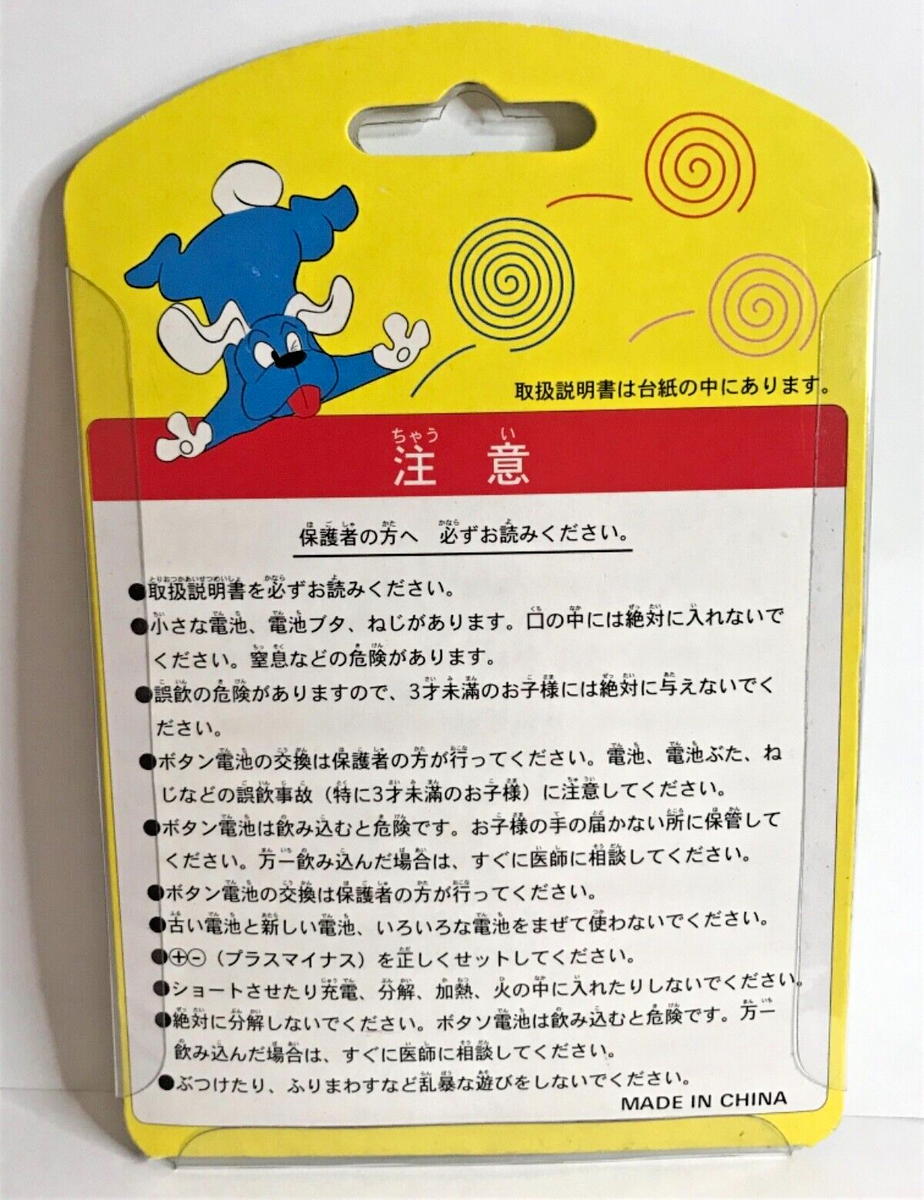 取扱説明書は台紙の中にあります。
ちゅう い
注 意
保護者の方へ 必ずお読みください。
●取扱説明書を必ずお読みください。
●小さな電池、電池ブタ、ねじがあります。口の中には絶対に入れないで
ください。窒息などの危険があります。
●誤飲の危険がありますので、3才未満のお子様には絶対に与えないでく
ださい。
●ボタン電池の交換は保護者の方が行ってください。電池、電池ぶた、ね
じなどの誤飲事故（特に3才未満のお子様）に注意してください。
●ボタン電池は飲み込むと危険です。お子様の手の届かない所に保管して
ください。万一飲み込んだ場合は、すぐに医師に相談してください。
●ボタン電池の交換は保護者の方が行ってください。
●古い電池と新しい電池、いろいろな電池をまぜて使わないでください。
●⊕⊖（プラスマイナス）を正しくセットしてください。
●ショートさせたり充電、分解、加熱、火の中に入れたりしないでください。
●絶対に分解しないでください。ボタソ電池は飲み込むと危険です。万一
飲み込んだ場合は、すぐに医師に相談してください。
●ぶつけたり、ふりまわすなど乱暴な遊びをしないでください。
MADE IN CHINA